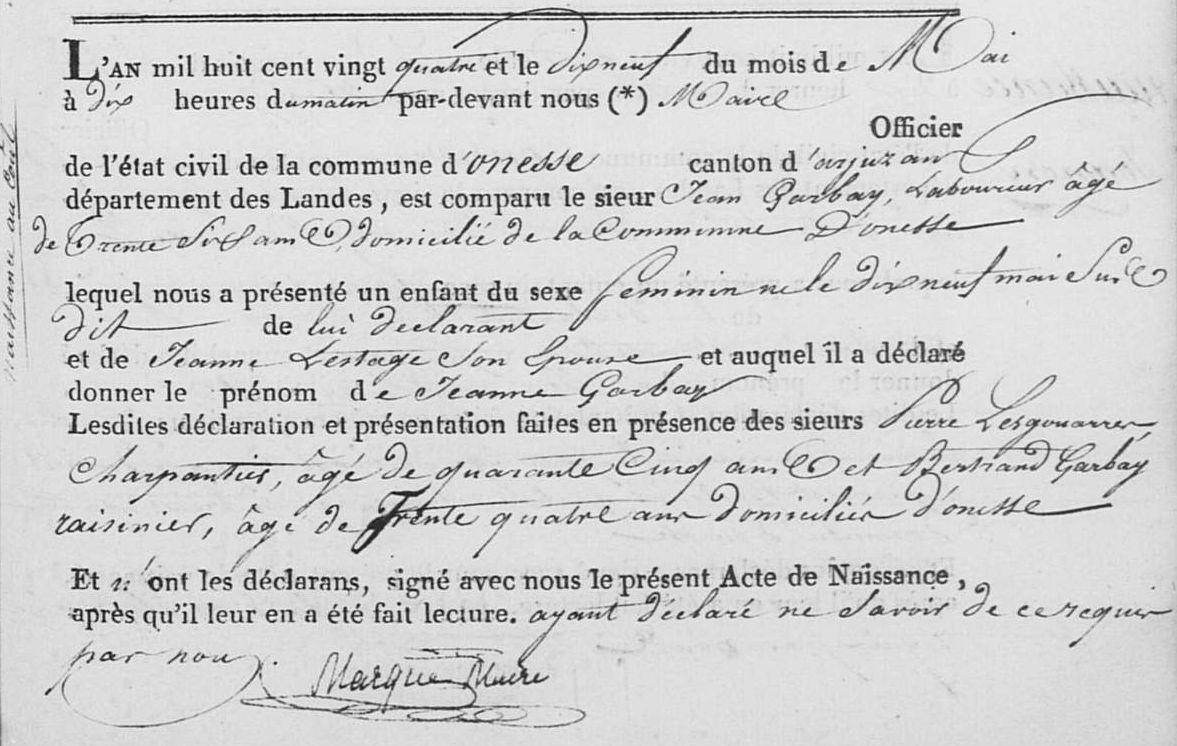 L'AN mil huit cent vingt quatre et le dix neuf du mois de Mai
à dix heures du matin par-devant nous (*) Maire
Officier
de l'état civil de la commune d'onesse canton d'arjuzan
département des Landes, est comparu le sieur Jean Garbay, Laboureur âgé
de Trente Six ans, domicilié de la Commune D'onesse
lequel nous a présenté un enfant du sexe feminin né le dix neuf mai Sus
dit de lui déclarant
et de Jeanne Lestage Son Epouse et auquel il a déclaré
donner le prénom de Jeanne Garbay
Lesdites déclaration et présentation faites en présence des sieurs Pierre Lesgouarres,
Charpantier, âgé de quarante Cinq ans et Bertrand Garbay
raisinier, âgé de Trente quatre ans domiciliés d'onesse
Et n'ont les déclarans, signé avec nous le présent Acte de Naissance,
après qu'il leur en a été fait lecture. ayant déclaré ne Savoir de ce requis
par nous.
Marque Maire